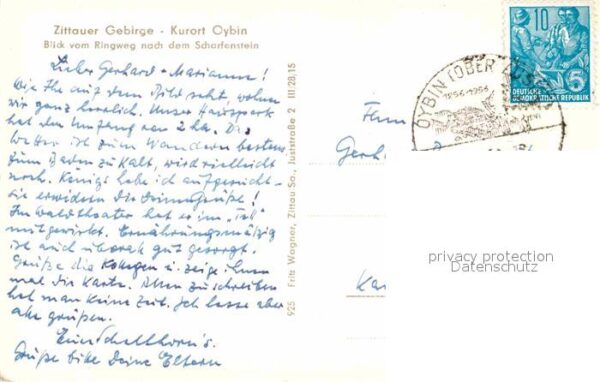 Zittauer Gebirge - Kurort Oybin
Blick vom Ringweg nach dem Scharfenstein
Lieber Gerhard + Marianne!
Wie Ihr auf dem Bild seht, wohnen
wir ganz herrlich. Unser Hauspark
hat den Umfang von 2 ha. Das
Wetter ist zum Wandern bestens
zum Baden zu kalt, wird vielleicht
noch. Königs habe ich aufgesucht -
sie erwidern die Grüße!
Im Waldtheater hat er im "Tell"
mitgewirkt. Ernährungsmäßig
ist auch überaus gut gesorgt.
Grüße die Kollegen u. zeige ihnen
mal die Karte. Allen zu schreiben
hat man keine Zeit. Ich lasse aber
alle grüßen.
Eure
Grüße bitte Deine Eltern
925 Fritz Wagner, Zittau Sa., Juststraße 2 III.28.15
10
DEUTSCHE
DEMOKRATISCHE REPUBLIK
5
OYBIN (OBER
1256-1956
Gerh
Ka
privacy protection
Datenschutz